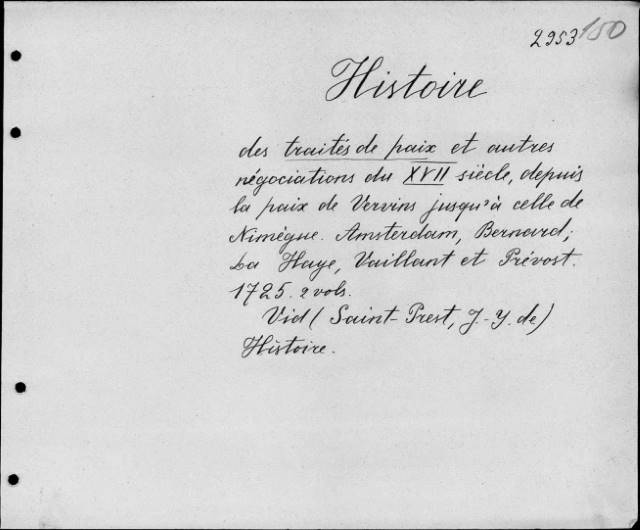 2953 150
Histoire
des traités de paix et autres
négociations du XVII siècle, depuis
la paix de Vervins jusqu'à celle de
Nimègue. Amsterdam, Bernard;
La Haye, Vaillant et Prévost.
1725. 2 vols.
Vid (Saint-Prest, J.-Y. de)
Histoire.